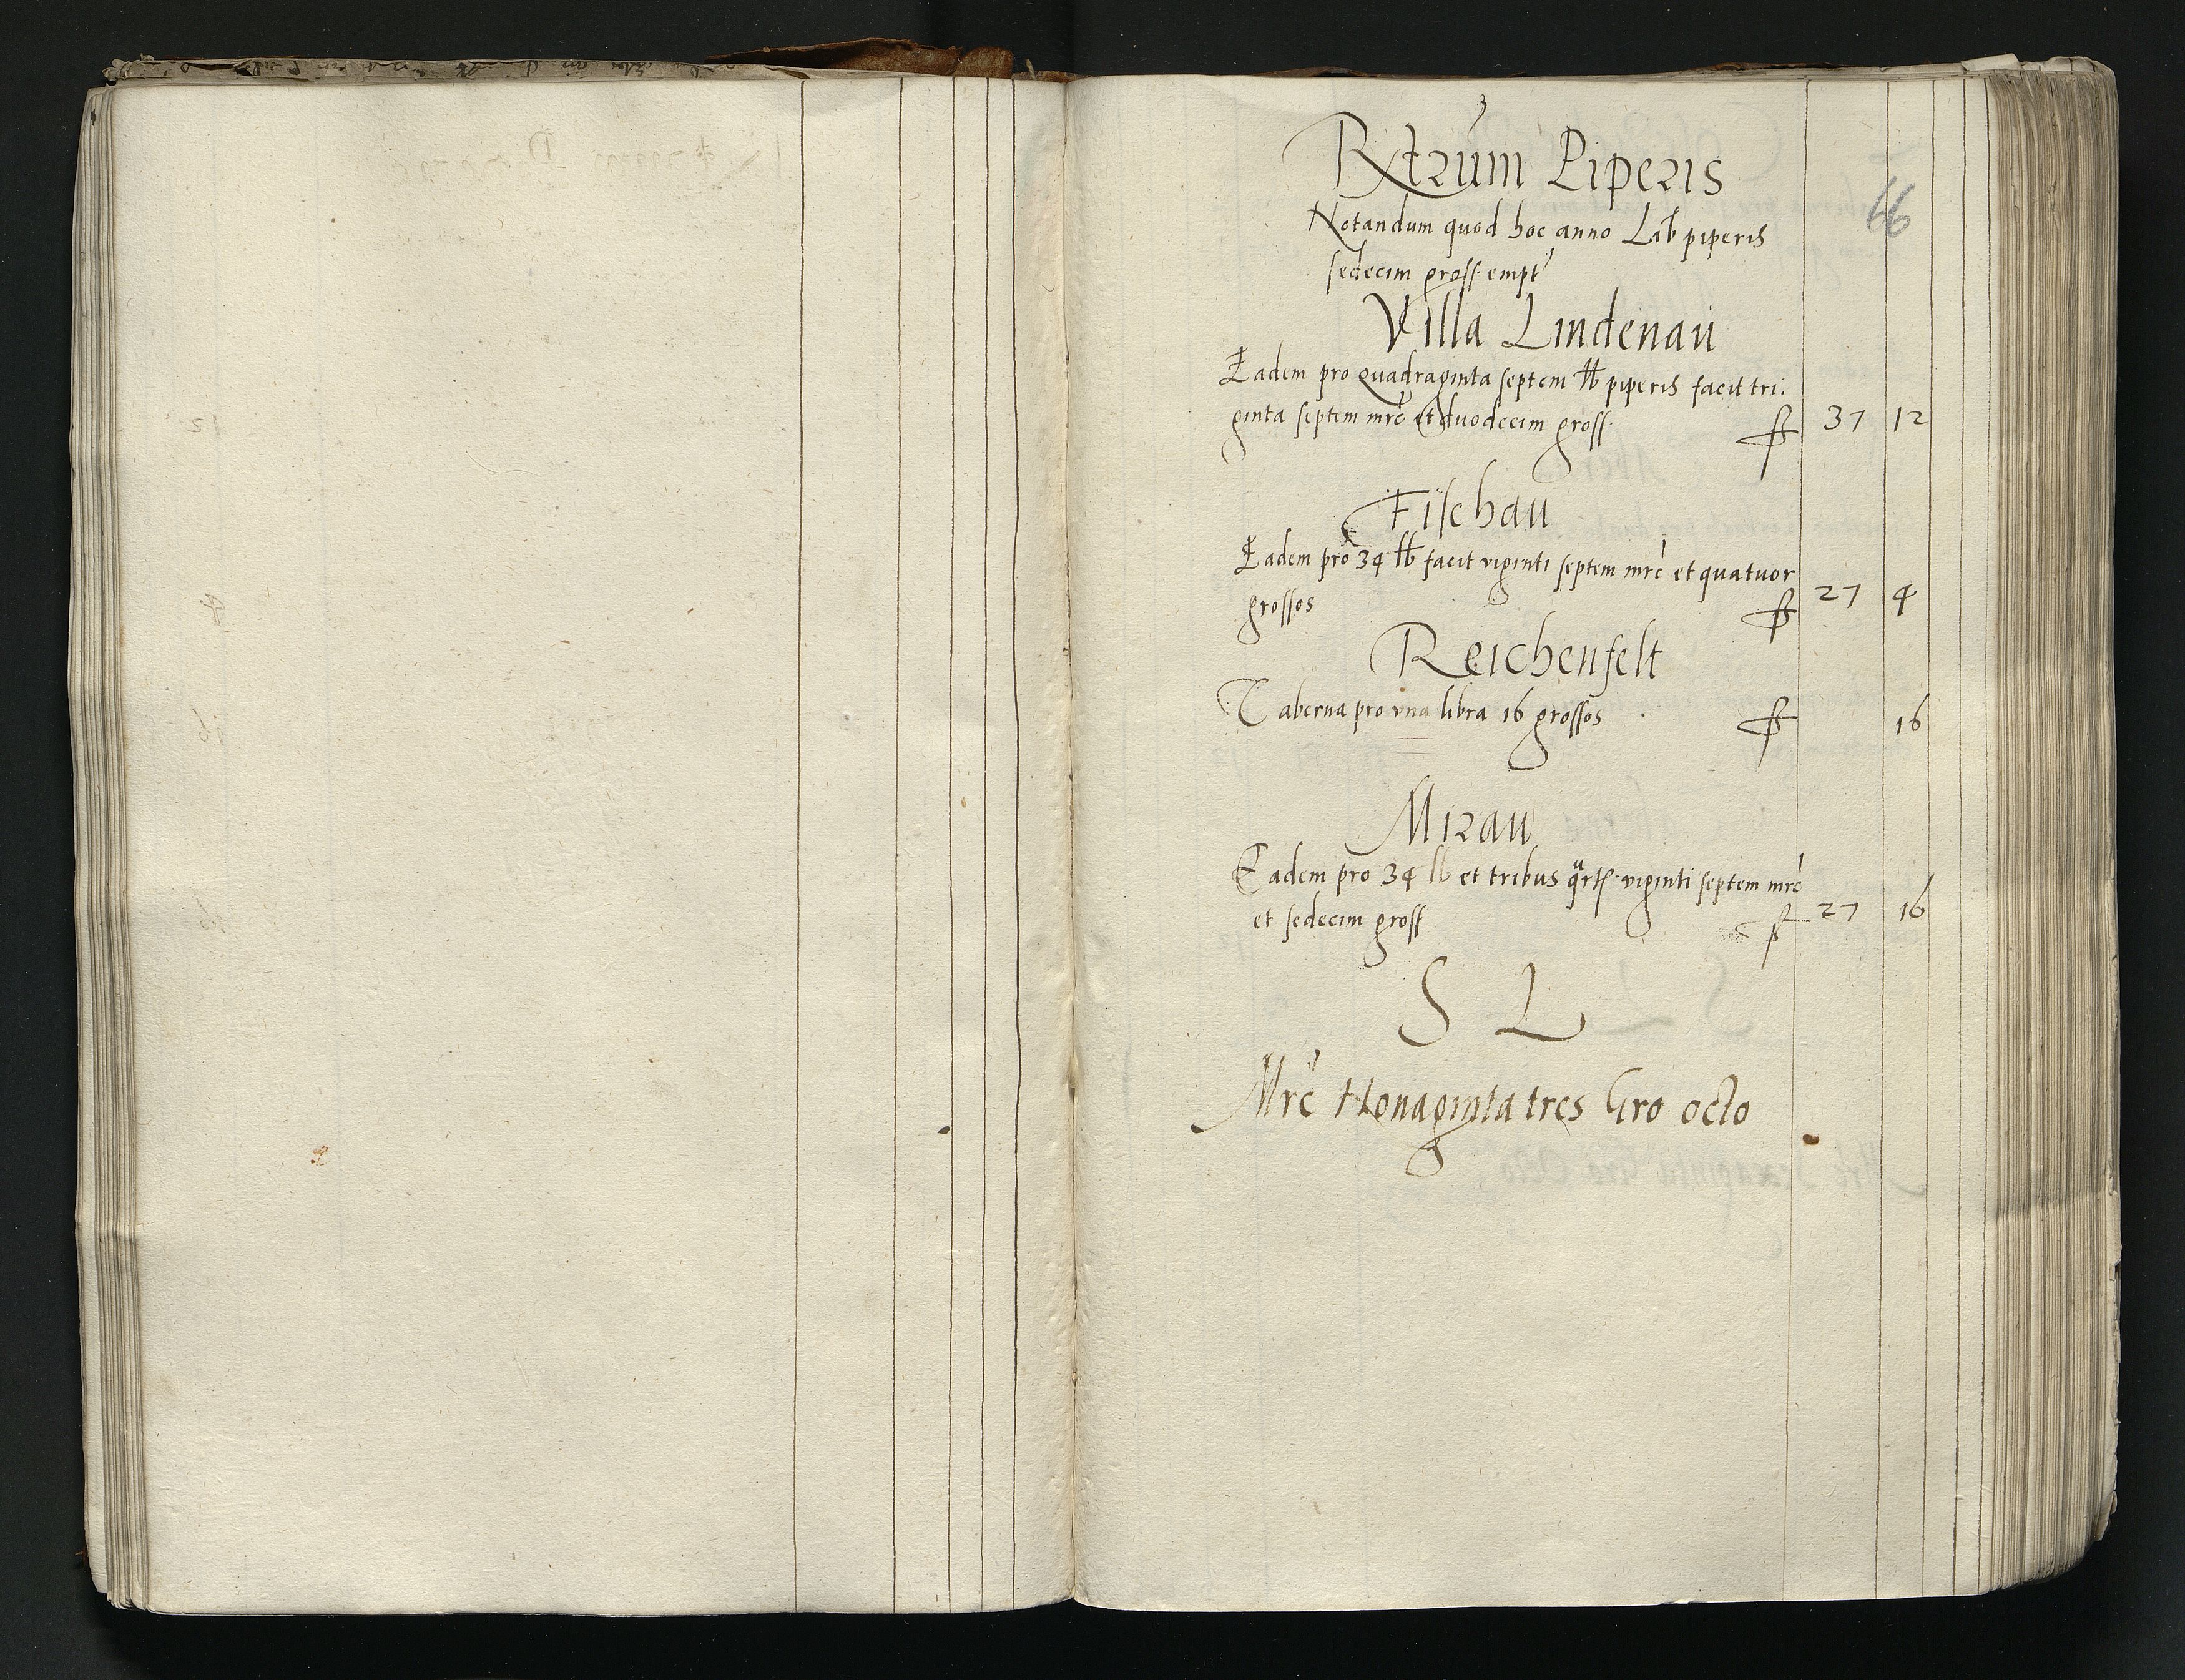 Rtrum Piperis
66
Notandum quod hoc anno Lib piperis
sedecim gross empt
Villa Lindenau
Eadem pro quadraginta septem lb piperis facit tri.
ginta septem mrc et duodecim gross. ft 37 12
Fischau
Eadem pro 34 lb facit viginti septem mrc et quatuor
grossos ft 27 4
Reichenfelt
Taberna pro vna libra 16 grossos ft 16
Mirau
Eadem pro 34 lb et tribus qrt. viginti septem mrc
et sedecim gross ft 27 16
S L
Mrc Nonaginta tres Gro octo